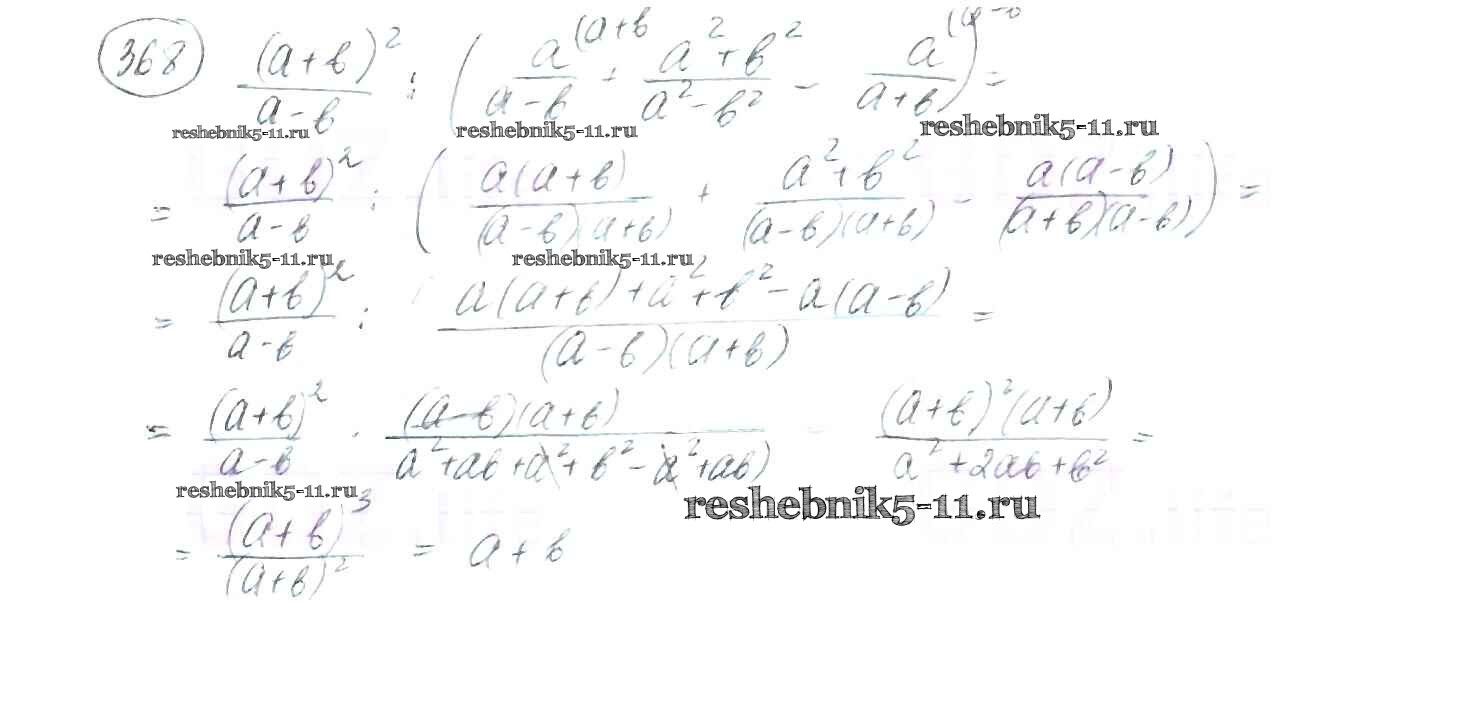 368 (a+в)²/(a-в) : (a^(a+в)/(a-в) + (a²+в²)/(a²-в²) - a/(a+в)) =
reshebnik5-11.ru reshebnik5-11.ru reshebnik5-11.ru
= (a+в)²/(a-в) : (a(a+в)/((a-в)(a+в)) + (a²+в²)/((a-в)(a+в)) - a(a-в)/((a+в)(a-в))) =
reshebnik5-11.ru reshebnik5-11.ru
= (a+в)²/(a-в) : (a(a+в)+a²+в²-a(a-в))/((a-в)(a+в)) =
= (a+в)²/(a-в) · (a-в)(a+в)/(a²+aв+a²+в²-a²+aв) - (a+в)²(a+в)/(a²+2aв+в²) =
reshebnik5-11.ru reshebnik5-11.ru
= (a+в)³/(a+в)² = a+в